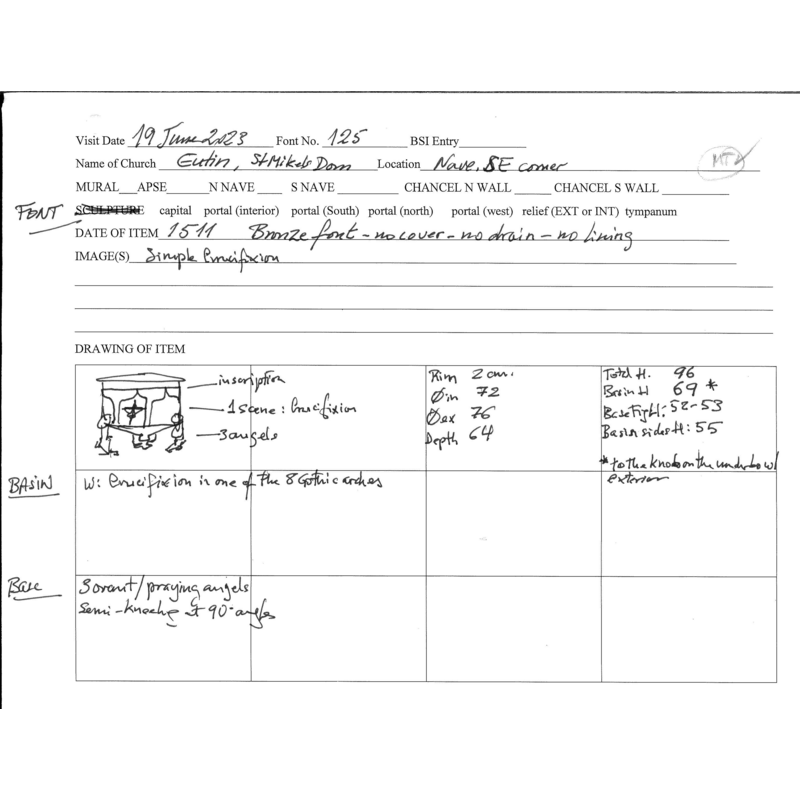 Visit Date 19 June 2023 Font No. 125 BSI Entry
Name of Church Eutin, St Mikels Dom Location Nave, SE corner
MURAL APSE N NAVE S NAVE CHANCEL N WALL CHANCEL S WALL
FONT SCULPTURE capital portal (interior) portal (South) portal (north) portal (west) relief (EXT or INT) tympanum
DATE OF ITEM 1511 Bronze font - no cover - no drain - no lining
IMAGE(S) Simple Crucifixion
DRAWING OF ITEM
inscription
1 scene: Crucifixion
3 angels
Rim 2 cm.
Øin 72
Øex 76
Depth 64
Total H. 96
Basin H 69 *
Base Fig H: 52-53
Basin sides H: 55
* to the knob on the underbowl
exterior
BASIN
W: Crucifixion in one of the 8 Gothic arches
Base
3 orant/praying angels
Semi-kneeling at 90-angles